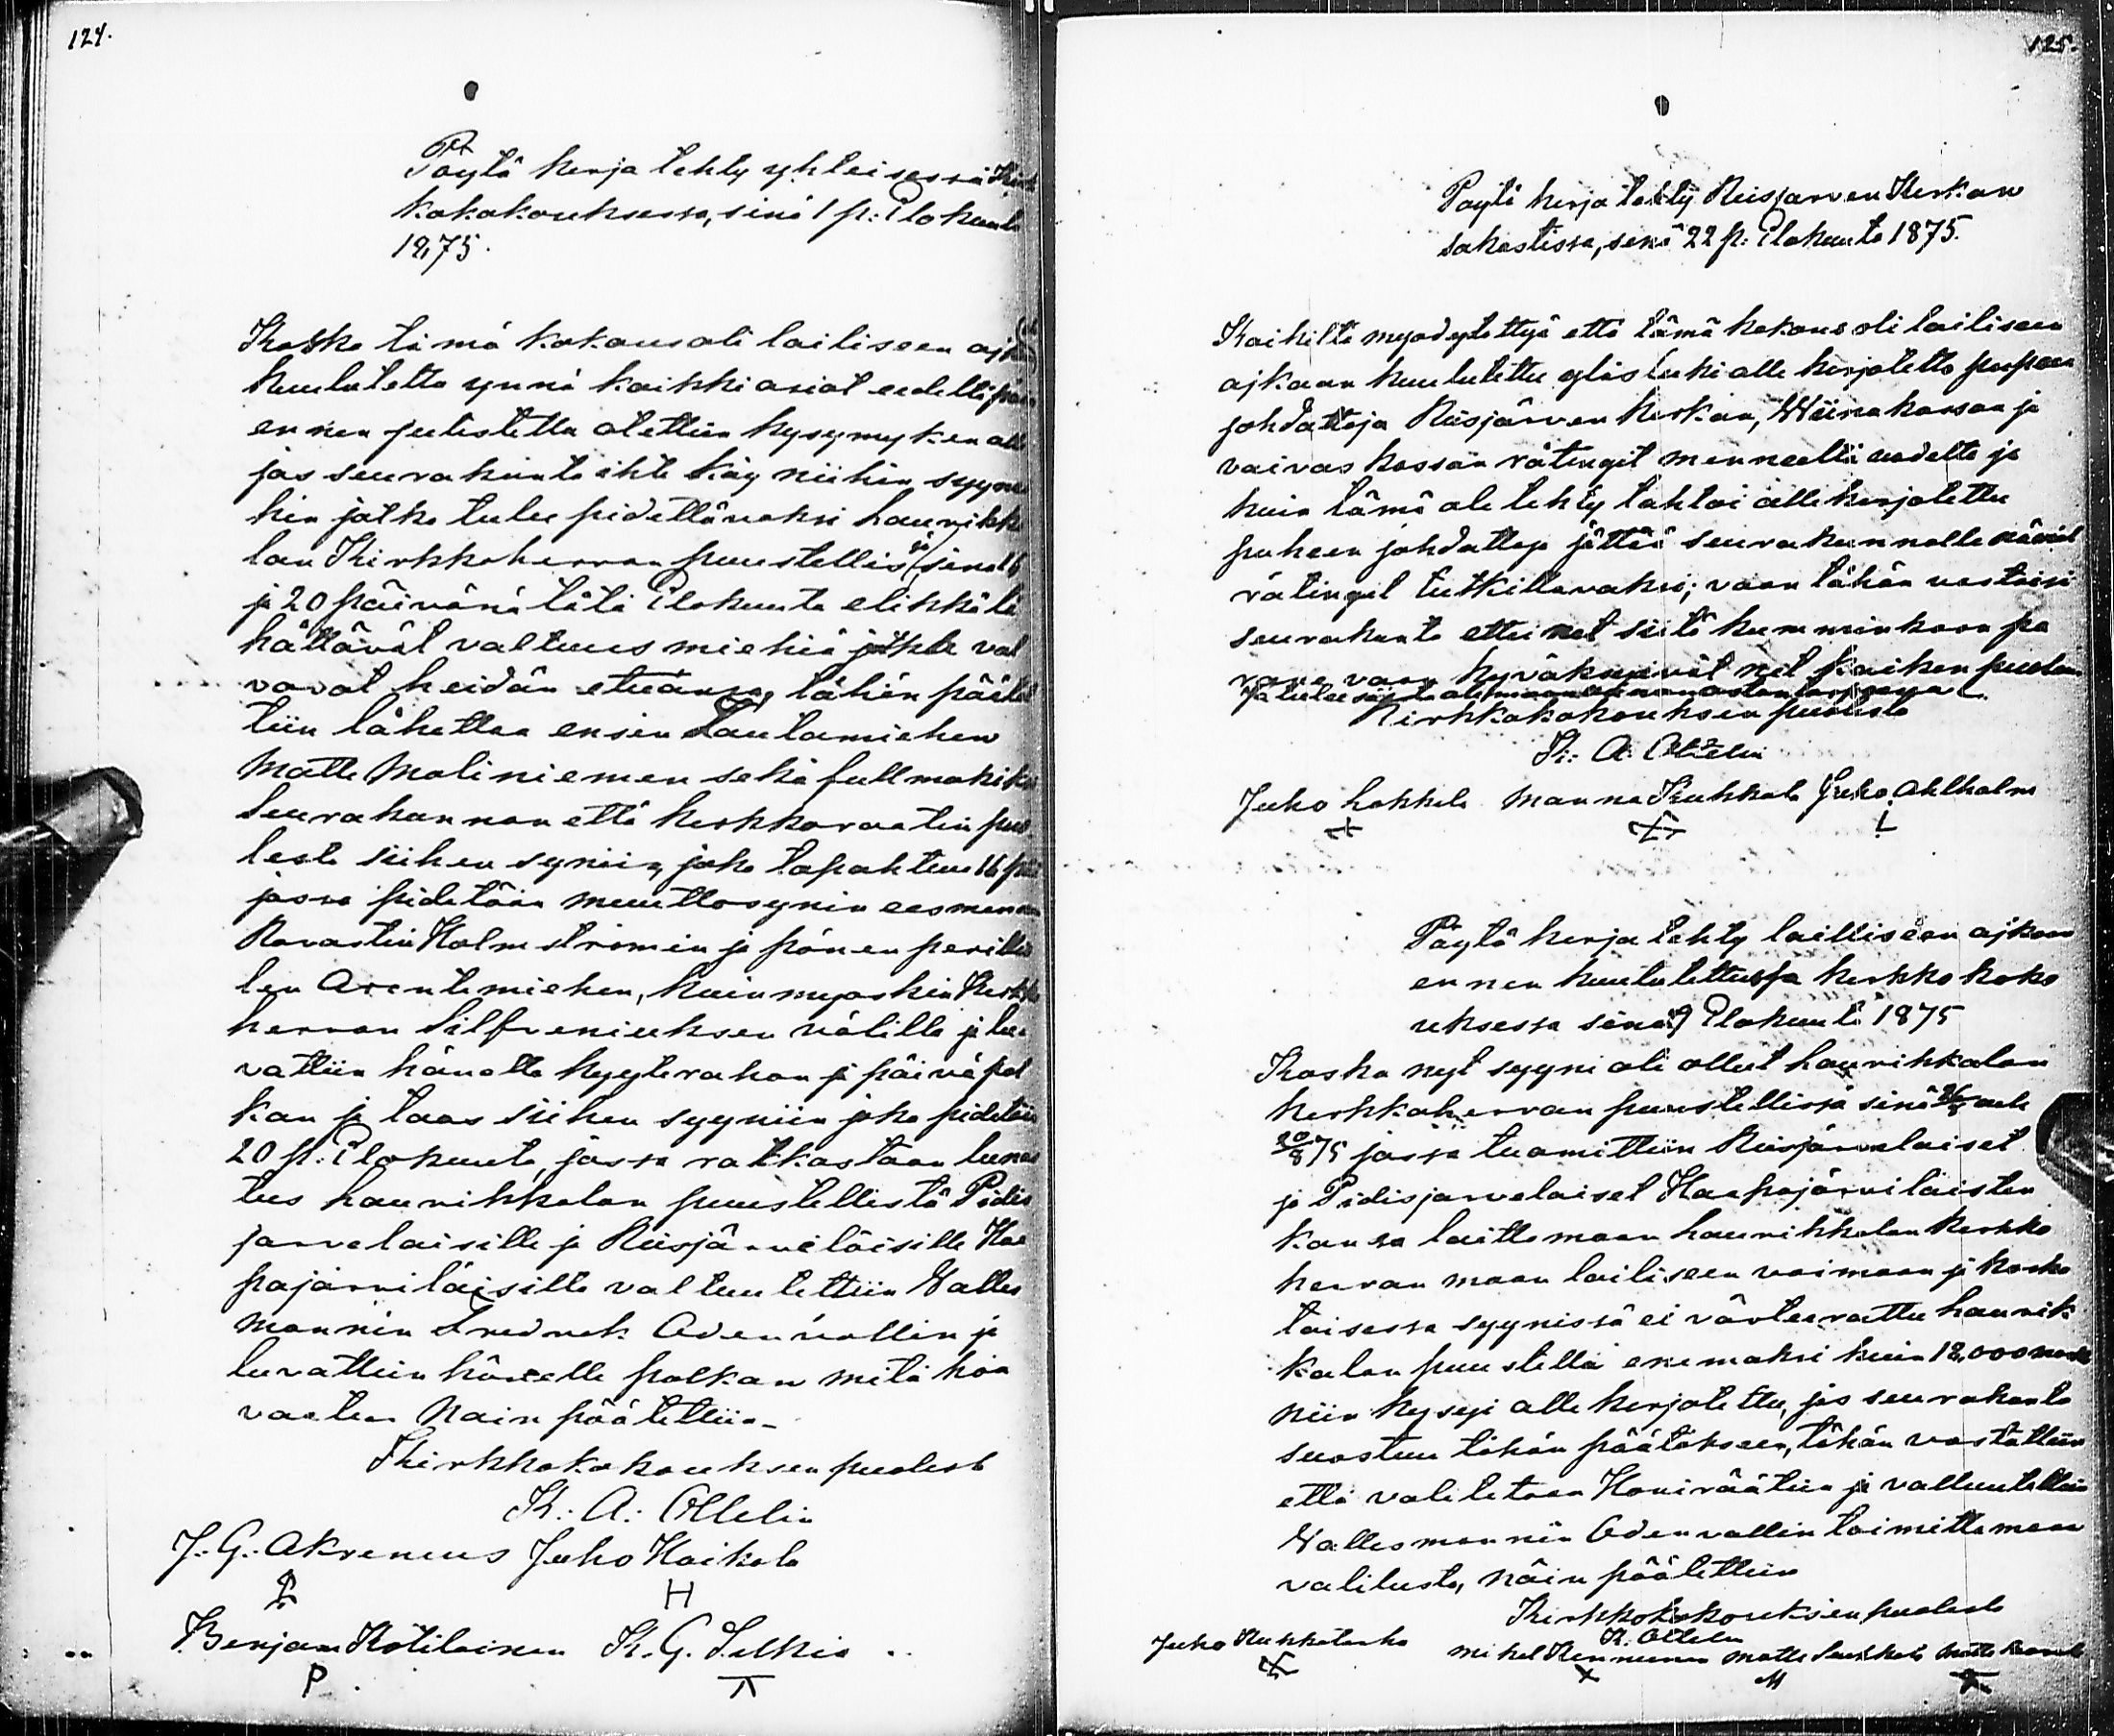 124.
Pöytä kerja tehty yhteisessä Kirk
kokokouksessa, sinä 1 p: Elokuuta
1875.
Koska tämä kokous oli lailiseen ajkan
kuulutettu ynnä kaikki asiat eedelli päin
ennen julistettu otettiin kysymyken alle
jos seurakunta ihte käy niihin syyni
hin jotka tulee pidettäväksi haurikka
lan Kirkkoherran puustellis ja sinä 16
ja 20 päivänä tätä Elokuuta elikkä lä
hättävät valtuus miehiä jotka val
vovat heidän etuansa, tähän päätet
tiin lähettaa ensin Lautamiehen
Matti Moliniemen sekä fullmakik
Seurakunnan että kerkkoraatin puo
lesta siihen syniin, joka tapahtuu 16 päi
jossa pidetään muuttosynin eesmennen
Rovastin Holmströmin ja pänen perillis
ten Arentimiehen, kuin myöskin Kerkko
herran Silfveniuksen välillä ja lu
vattiin hänelle kyyterahan ja päivä pal
kan ja taas siihen syyniin joka pidetän
20 p: Elokuuta, jossa ratkastaan lunas
tus haurikkalan puustellista Pidis
jarvelaisille ja Reisjärveläisille Haa
pajärviläisiltä valtuutettiin Valles
mannin Fredrik Adenvallin ja
luvattiin hänelle palkan mitä hän
vaatii Näin päätettiin
Kirkkokokouksen puolest
K: A: Ollelin
J: G: Akrenius Juho Haikola
H
Benjam Kotilainen K. G. Selkia
P
125.
Poytä kerja tehty Reisjarven Kerkon
sakastissa, senä 22 p: Elokuuta 1875.
Kaikilta myödytettyä että tämä kokous oli lailiseen
ajkaan kuulutettu ylös luki alle kirjotettu puheen
johdattaja Reisjärven kerkon, Wiinakassan ja
vaivas kassan rätingit menneeltä uodelta ja
kuin tämä ole tehty tahtoi alle kerjotettu
puheen johdattaja jättää seurakunnalle nämät
rätingit tutkittavaksi; vaan tähän vastaisi
seurakunta ettei net siitä kumminkaan pa
rane vaan hyväksyivät net kaiken puolen
Kirkkokokouksen puolesta
K: A: Ollelin
Juho Lokkela Manna Kukkola Juho Ahlholm
Pöytä kerja tehty laillisean ajkaan
ennen kuulutettussa kerkko koko
uksessa sinä Elokuuta 1875
Koska nyt syyni oli ollut haurikkalan
kerkkoherran puustellissa sinä
20/8 75 jossa tuomittiin Reisjärvelaiset
ja Pidisjarvelaiset Haapajärviläisten
kansa laittamaan haurikkalan kerkko
herran maan lailiseen voimaan ja koska
toisessa syynissä ei värteerattu haurik
kalan puustellia enemäksi kuin 12,000 markk
niin kysyi alle kerjotettu, jos seurakunta
suostuu tähän päätökseen, tähän vastattiin
että valitetaan Hovirääteen ja valtuutettiin
Vallesmannin Adenvallin toimittamaan
valitusta, näin päätettiin
Kirkkokokouksen puolesta
K. Ollelin
Juho Mikel Kenneinen Matti
M